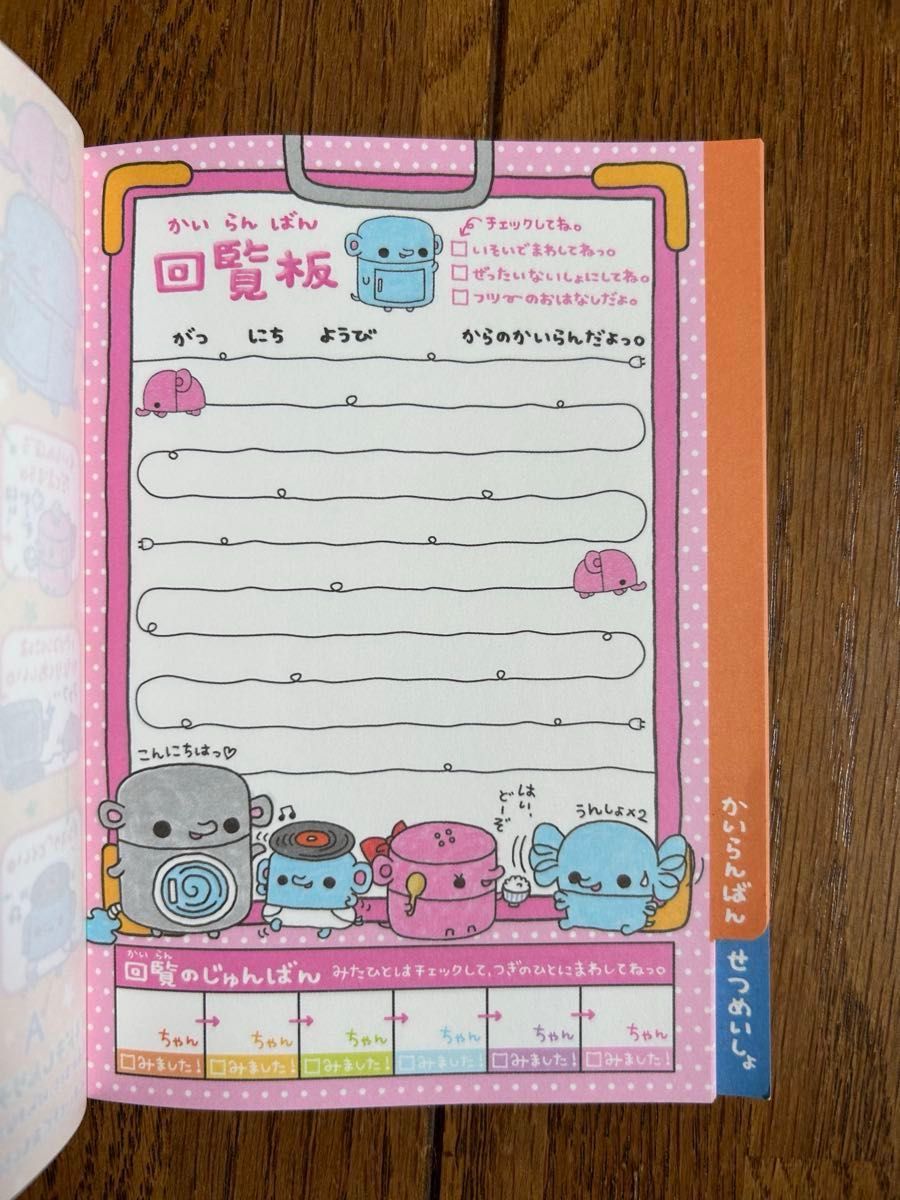 かい らん ばん
回覧板
チェックしてね。
いそいでまわしてねっ。
ぜったいないしょにしてね。
フツーのおはなしだよ。
がつ にち ようび からのかいらんだよっ。
こんにちはっ♡
はい、
どーぞ
うんしょ×2
かい らん
回覧のじゅんばん みたひとはチェックして、つぎのひとにまわしてねっ。
ちゃん → ちゃん → ちゃん → ちゃん → ちゃん → ちゃん
みました! みました! みました! みました! みました! みました!
かいらんばん
せつめいしょ